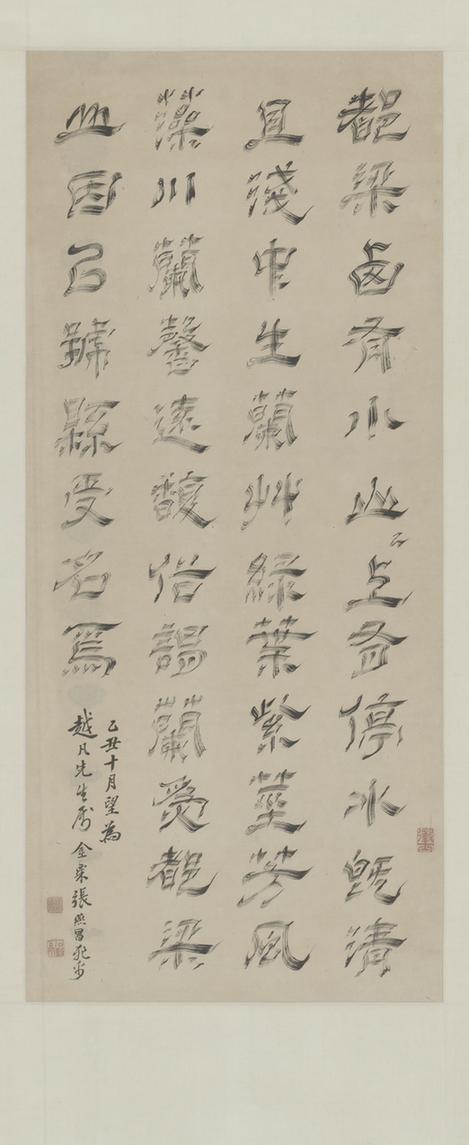 都梁西有小山〻上有停水既清
且淺中生蘭艸綠葉紫莖芳風
藻川蘭馨遠馥俗謂蘭爲都梁
山因㠯號縣受名焉
乙丑十月望為
越凡先生屬 金粟張燕昌飛白